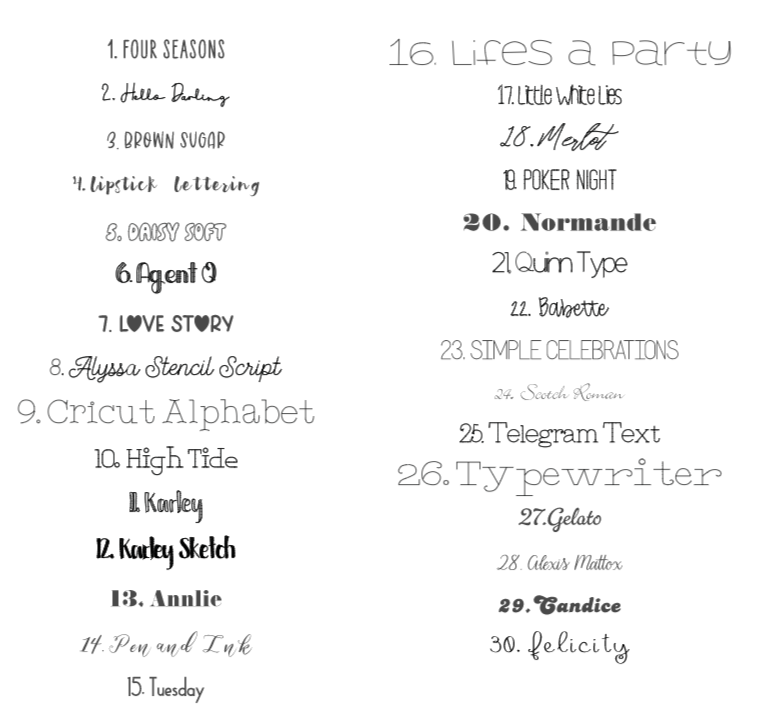 1. FOUR SEASONS
2. Hello Darling
3. BROWN SUGAR
4. lipstick lettering
5. DAISY SOFT
6. Agent Q
7. L♥VE ST♥RY
8. Alyssa Stencil Script
9. Cricut Alphabet
10. High Tide
11. Karley
12. Karley Sketch
13. Annlie
14. Pen and Ink
15. Tuesday
16. Lifes a Party
17. Little White Lies
18. Merlot
19. POKER NIGHT
20. Normande
21. Quin Type
22. Babette
23. SIMPLE CELEBRATIONS
24. Scotch Roman
25. Telegram Text
26. Typewriter
27. Gelato
28. Alexis Mattox
29. Candice
30. felicity